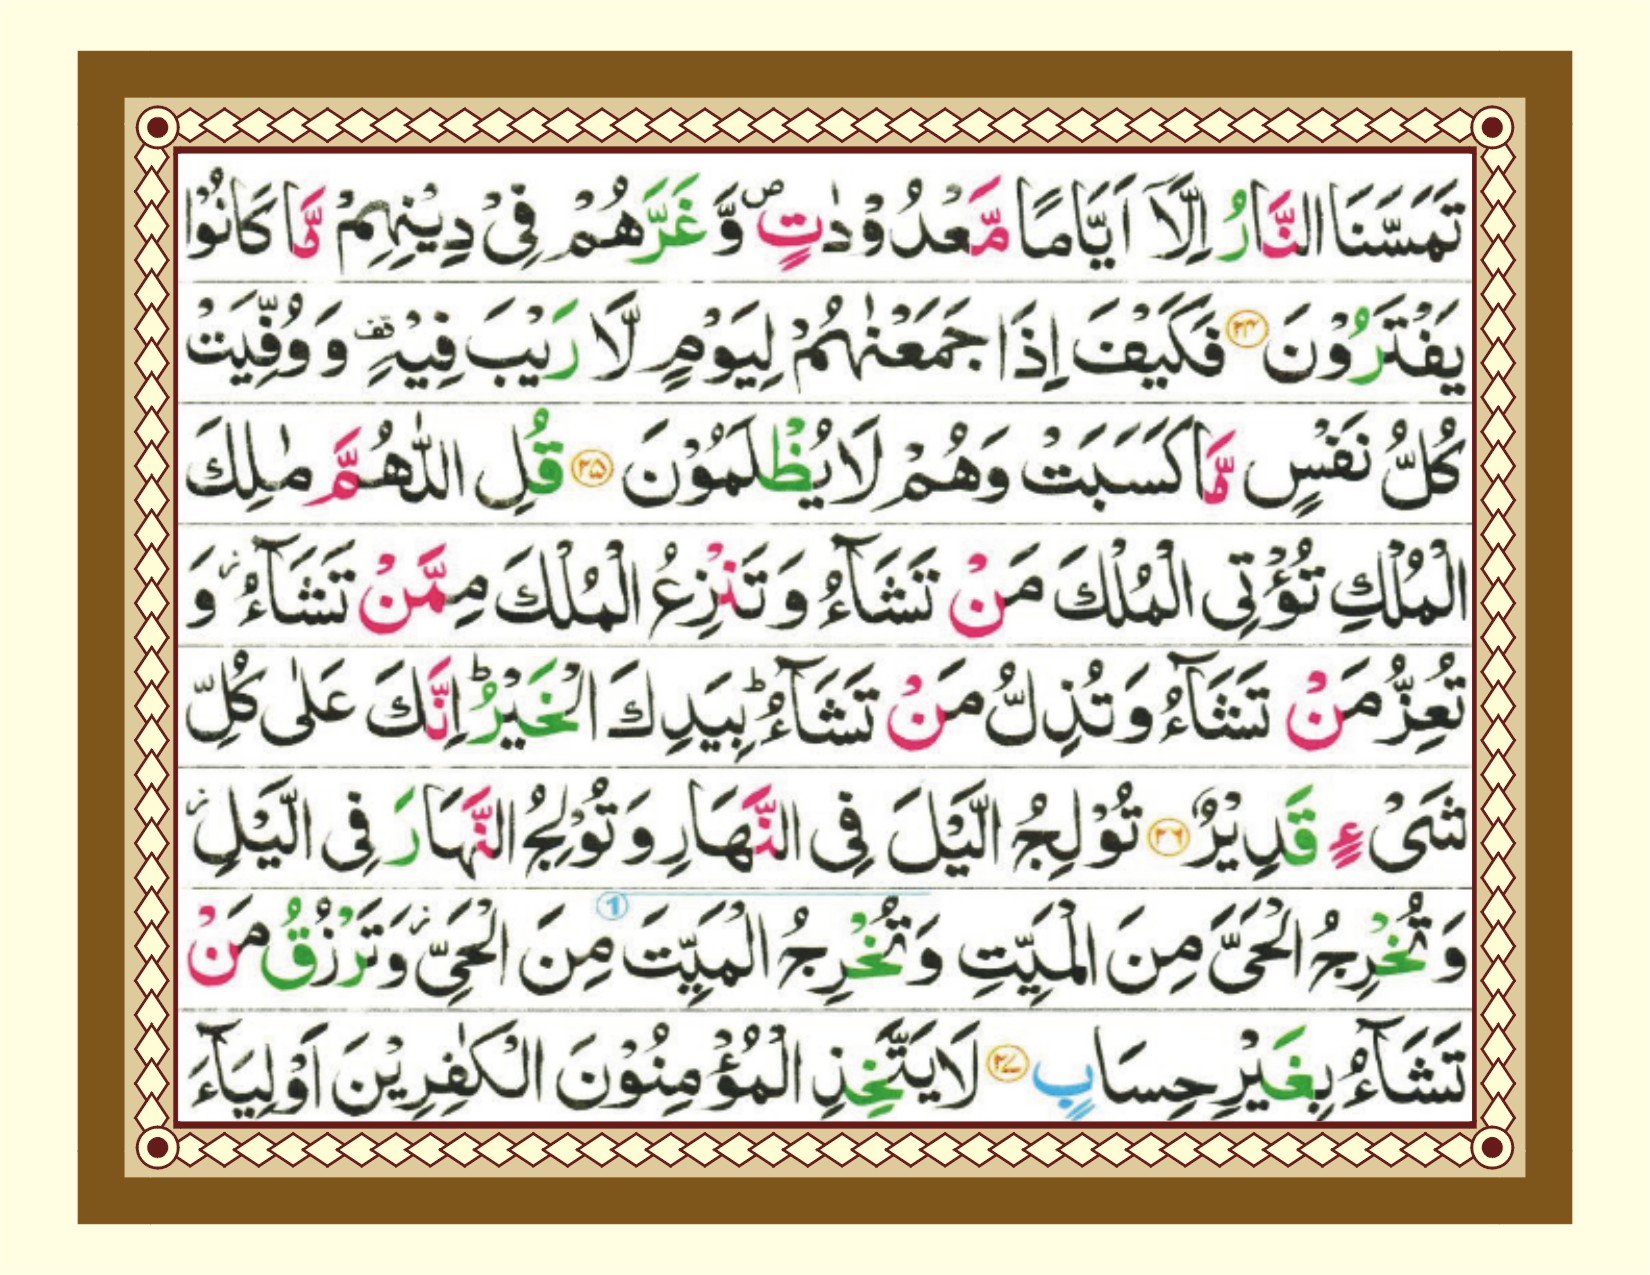 تَمَسَّنَا النَّارُ اِلَّاۤ اَيَّامًا مَّعْدُوْدٰتٍ ۪ وَّغَرَّهُمْ فِىْ دِيْنِهِمْ مَّا كَانُوْا
يَفْتَرُوْنَ ﴿۲۴﴾ فَكَيْفَ اِذَا جَمَعْنٰهُمْ لِيَوْمٍ لَّا رَيْبَ فِيْهِ ۟ وَوُفِّيَتْ
كُلُّ نَفْسٍ مَّا كَسَبَتْ وَهُمْ لَا يُظْلَمُوْنَ ﴿۲۵﴾ قُلِ اللّٰهُمَّ مٰلِكَ
الْمُلْكِ تُؤْتِى الْمُلْكَ مَنْ تَشَآءُ وَتَنْزِعُ الْمُلْكَ مِمَّنْ تَشَآءُ ز وَ
تُعِزُّ مَنْ تَشَآءُ وَتُذِلُّ مَنْ تَشَآءُ ؕ بِيَدِكَ الْخَيْرُ ؕ اِنَّكَ عَلٰى كُلِّ
شَىْءٍ قَدِيْرٌ ﴿۲۶﴾ تُوْلِجُ الَّيْلَ فِى النَّهَارِ وَتُوْلِجُ النَّهَارَ فِى الَّيْلِ ز
وَتُخْرِجُ الْحَىَّ مِنَ الْمَيِّتِ وَتُخْرِجُ الْمَيِّتَ ① مِنَ الْحَىِّ ز وَتَرْزُقُ مَنْ
تَشَآءُ بِغَيْرِ حِسَابٍ ﴿۲۷﴾ لَا يَتَّخِذِ الْمُؤْمِنُوْنَ الْكٰفِرِيْنَ اَوْلِيَآءَ